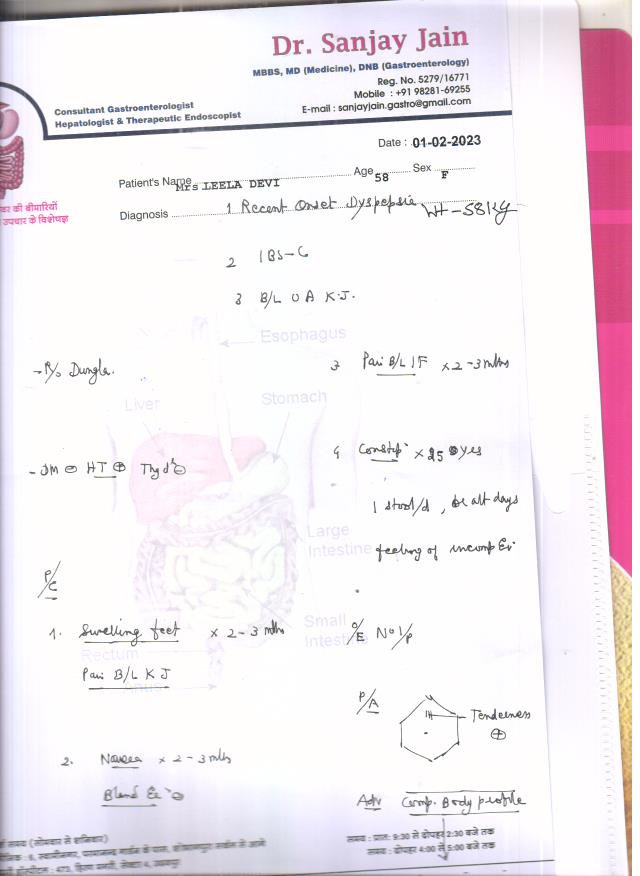 Dr. Sanjay Jain
MBBS, MD (Medicine), DNB (Gastroenterology)
Reg. No. 5279/16771
Mobile : +91 98281-69255
E-mail : sanjayjain.gastro@gmail.com
Consultant Gastroenterologist
Hepatologist & Therapeutic Endoscopist
Date : 01-02-2023
Patient's Name Mrs LEELA DEVI Age 58 Sex F
की बीमारियों
उपचार के विशेषज्ञ
Diagnosis 1 Recent Onset Dyspepsia Wt-58Kg
2 IBS-C
3 B/L OA K.J.
Esophagus
- R/o Dungla.
3 Pain B/L IF x 2-3 mths
Liver
Stomach
- DM ⊖ HT ⊕ Thyd ⊖
4 Constip x 25 yrs
1 stool/d, or alt days
Large
Intestine
feeling of incomp Ev
P/C
1. Swelling feet x 2-3 mths
Small
Intestine
O/E No I/P
Rectum
Pain B/L K J
Anus
P/A
Tenderness
⊕
2. Nausea x 2-3 mths
Adv Comp. Body profile
समय (सोमवार से शनिवार)
समय : प्रातः 9:30 से दोपहर 2:30 बजे तक
समय : दोपहर 4:00 से 5:00 बजे तक